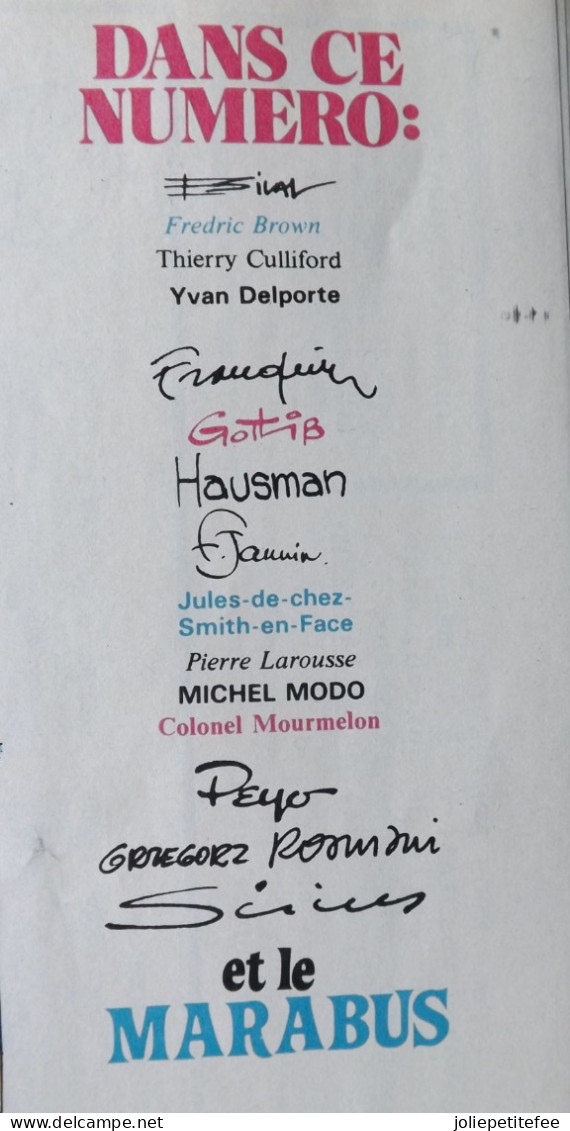 DANS CE
NUMERO:
Bilal
Fredric Brown
Thierry Culliford
Yvan Delporte
Franquin
Gotlib
Hausman
F. Jannin.
Jules-de-chez-
Smith-en-Face
Pierre Larousse
MICHEL MODO
Colonel Mourmelon
Peyo
GRZEGORZ ROSIŃSKI
Sirius
et le
MARABUS
delcampe.net
joliepetitefee